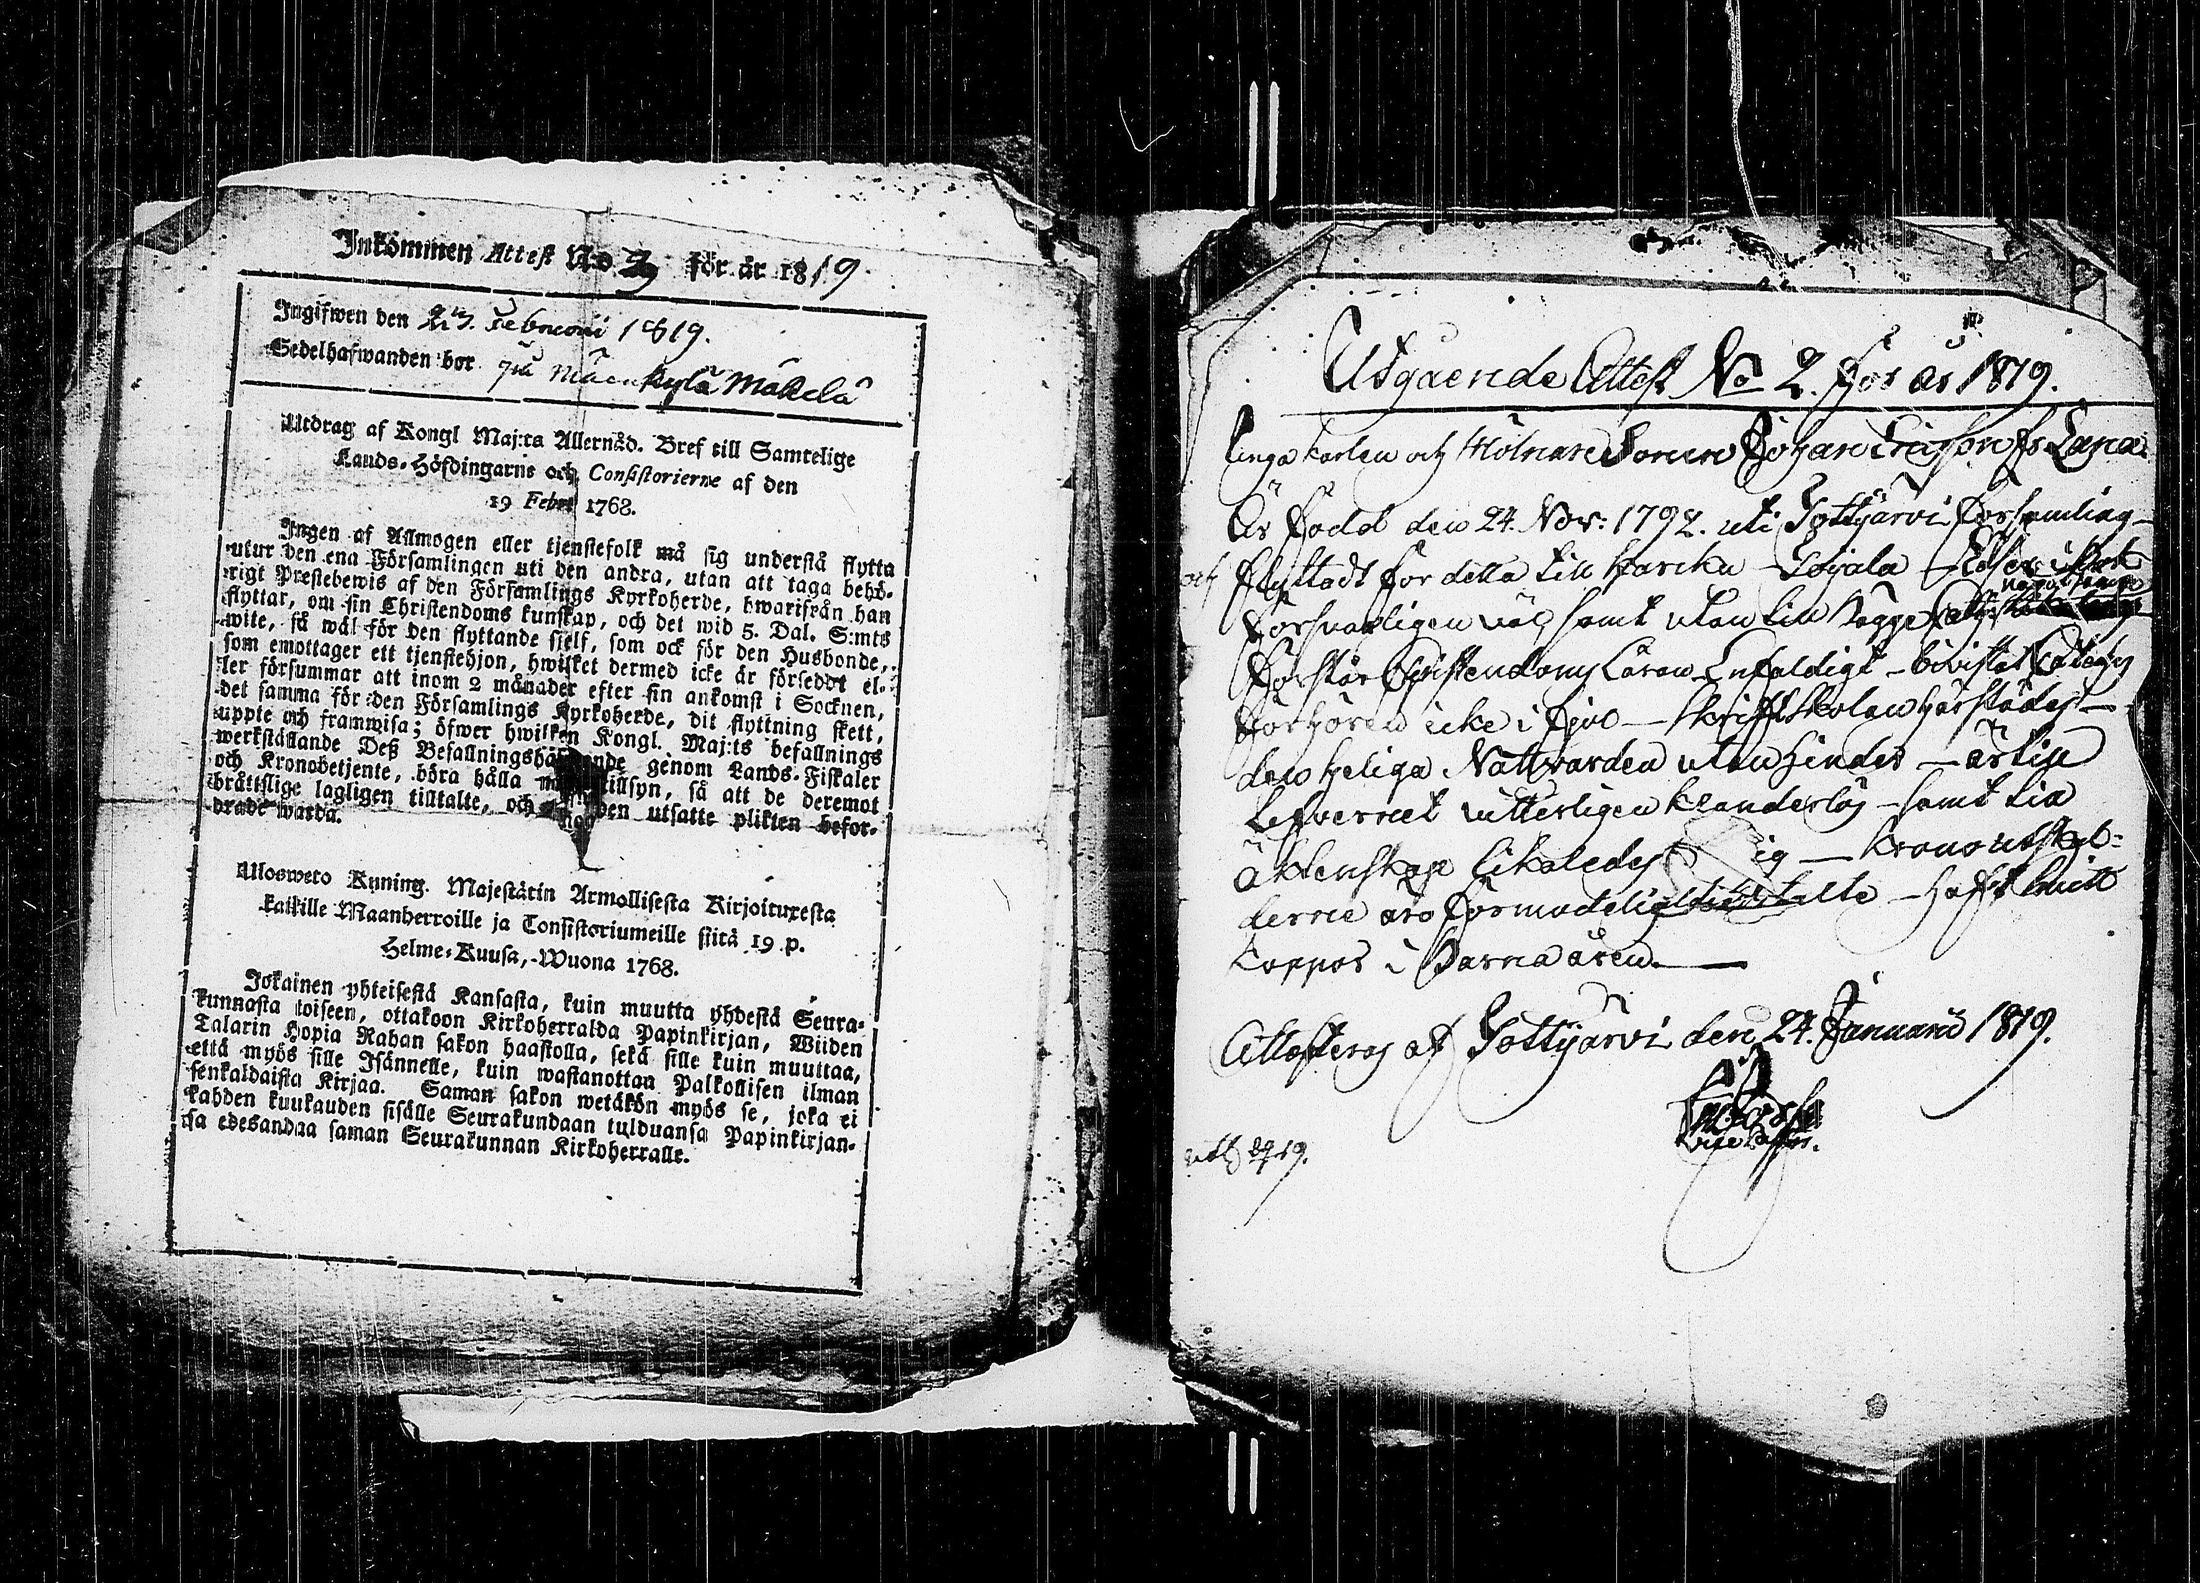 Inkommen Attest No 3 för år 1819.
Ingifwen den 23. Februarii 1819.
Sedelhafwanden bor på Mäenkylä Mäkelä
Utdrag af Kongl Maj:ts Allernåd. Bref till Samtelige
Lands-Höfdingarne och Consistorierne af den
19 Febr. 1768.
Ingen af Allmogen eller tjenstefolk må sig understå flytta
utur den ena Församlingen uti den andra, utan att taga behö-
rigt Prestebewis af den Församlings Kyrkoherde, hwarifrån han
flyttar, om sin Christendoms kunskap, och det wid 5. Dal. S:mts
wite, så wäl för den flyttande sjelf, som ock för den Husbonde,
som emottager ett tjenstehjon, hwilket dermed icke är försedt el-
ler försummar att inom 2 månader efter sin ankomst i Socknen,
det samma för den Församlings Kyrkoherde, dit flyttning skett,
uppte och framwisa; öfwer hwilken Kongl. Maj:ts befallnings
werkställande Deß Befallningshafwande genom Lands-Fiskaler
och Kronobetjente, böra hålla tillsyn, så att de deremot
bråttslige lagligen tilltalte, och den utsatte plikten befor-
drade warda.
Ulosweto Kuning. Majestätin Armollisesta Kirjoituxesta
kaikille Maanherroille ja Consistoriumeille siitä 19 p.
Helme-Kuusa, Wuona 1768.
Jokainen yhteisestä Kansasta, kuin muutta yhdestä Seura-
kunnasta toiseen, ottakoon Kirkoherralda Papinkirjan, Wiiden
Talarin Hopia Rahan sakon haastolla, sekä sille kuin muuttaa,
että myös sille Isännelle, kuin wastanottaa Palkollisen ilman
senkaldaista Kirjaa. Saman sakon wetäkön myös se, joka ei
kahden kuukauden sisälle Seurakundaan tulduansa Papinkirjan-
sa edesandaa saman Seurakunnan Kirkoherralle.
Utgående Attest No 2. för år 1819.
Unga Karlen och Mölnare Sonen Johan Ericsson fr.
Är född den 24. Nov: 1792. uti Tottijärvi församling
och flyttadt för detta till Karcku
försvarligen väl samt utan till
förstår Christendoms Läran Enfaldigt - bivistat
förhören icke i fjol - Skriftskolan härstädes -
den heliga Nattvarden utan hinder - är till
Lefvernet vitterligen klanderlös - samt till
äktenskap likaledes ig - Kronoutskyl-
derne äro förmodeligen - haft
koppor i Barna åren.
Attesteras af Tottijärvi den 24. Januarii 1819.
Vice Pastor.